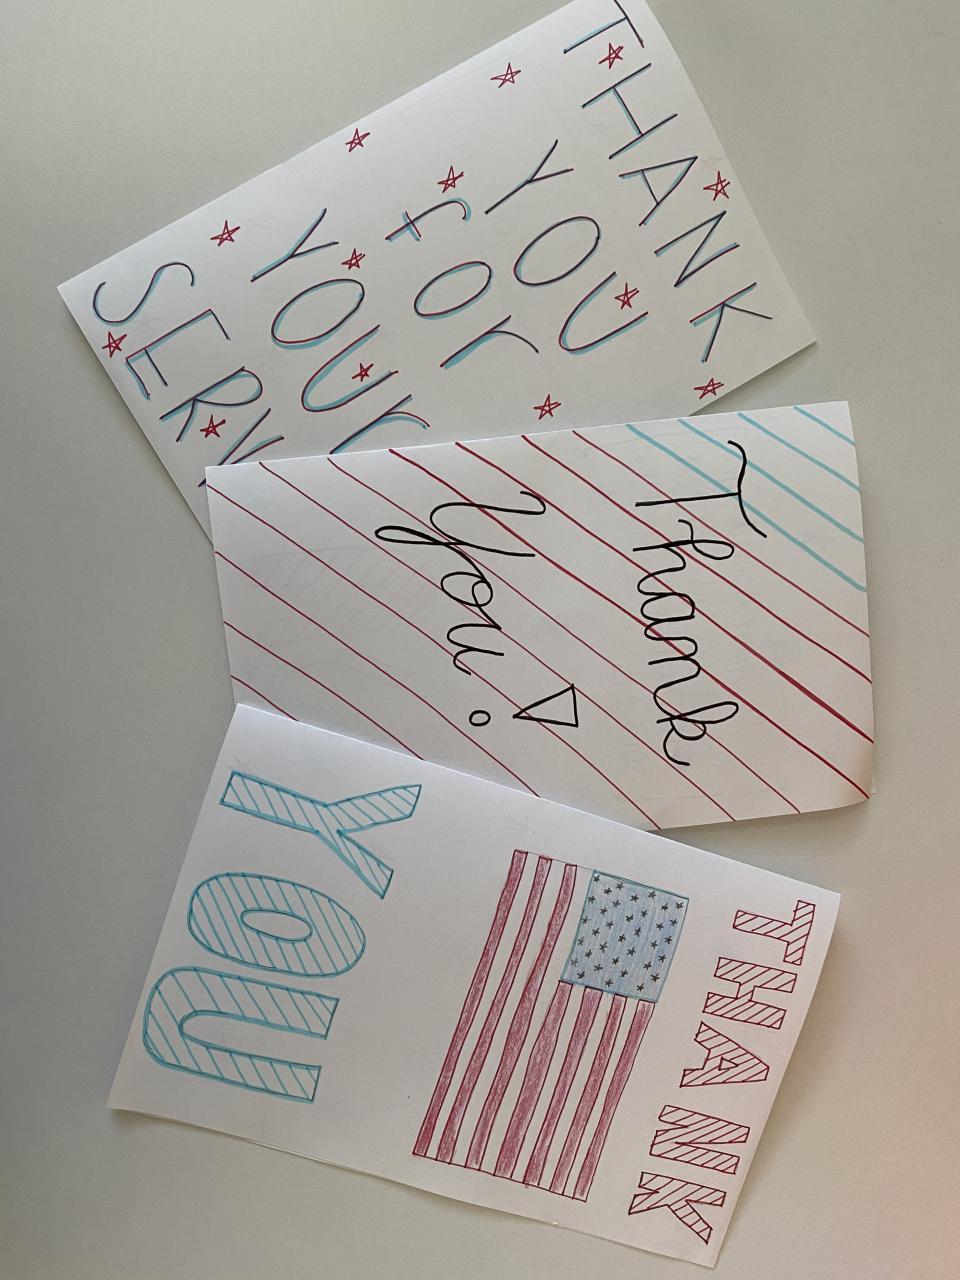 THANK
YOU
for
YOUr
SERV
Thank
You!
THANK
YOU